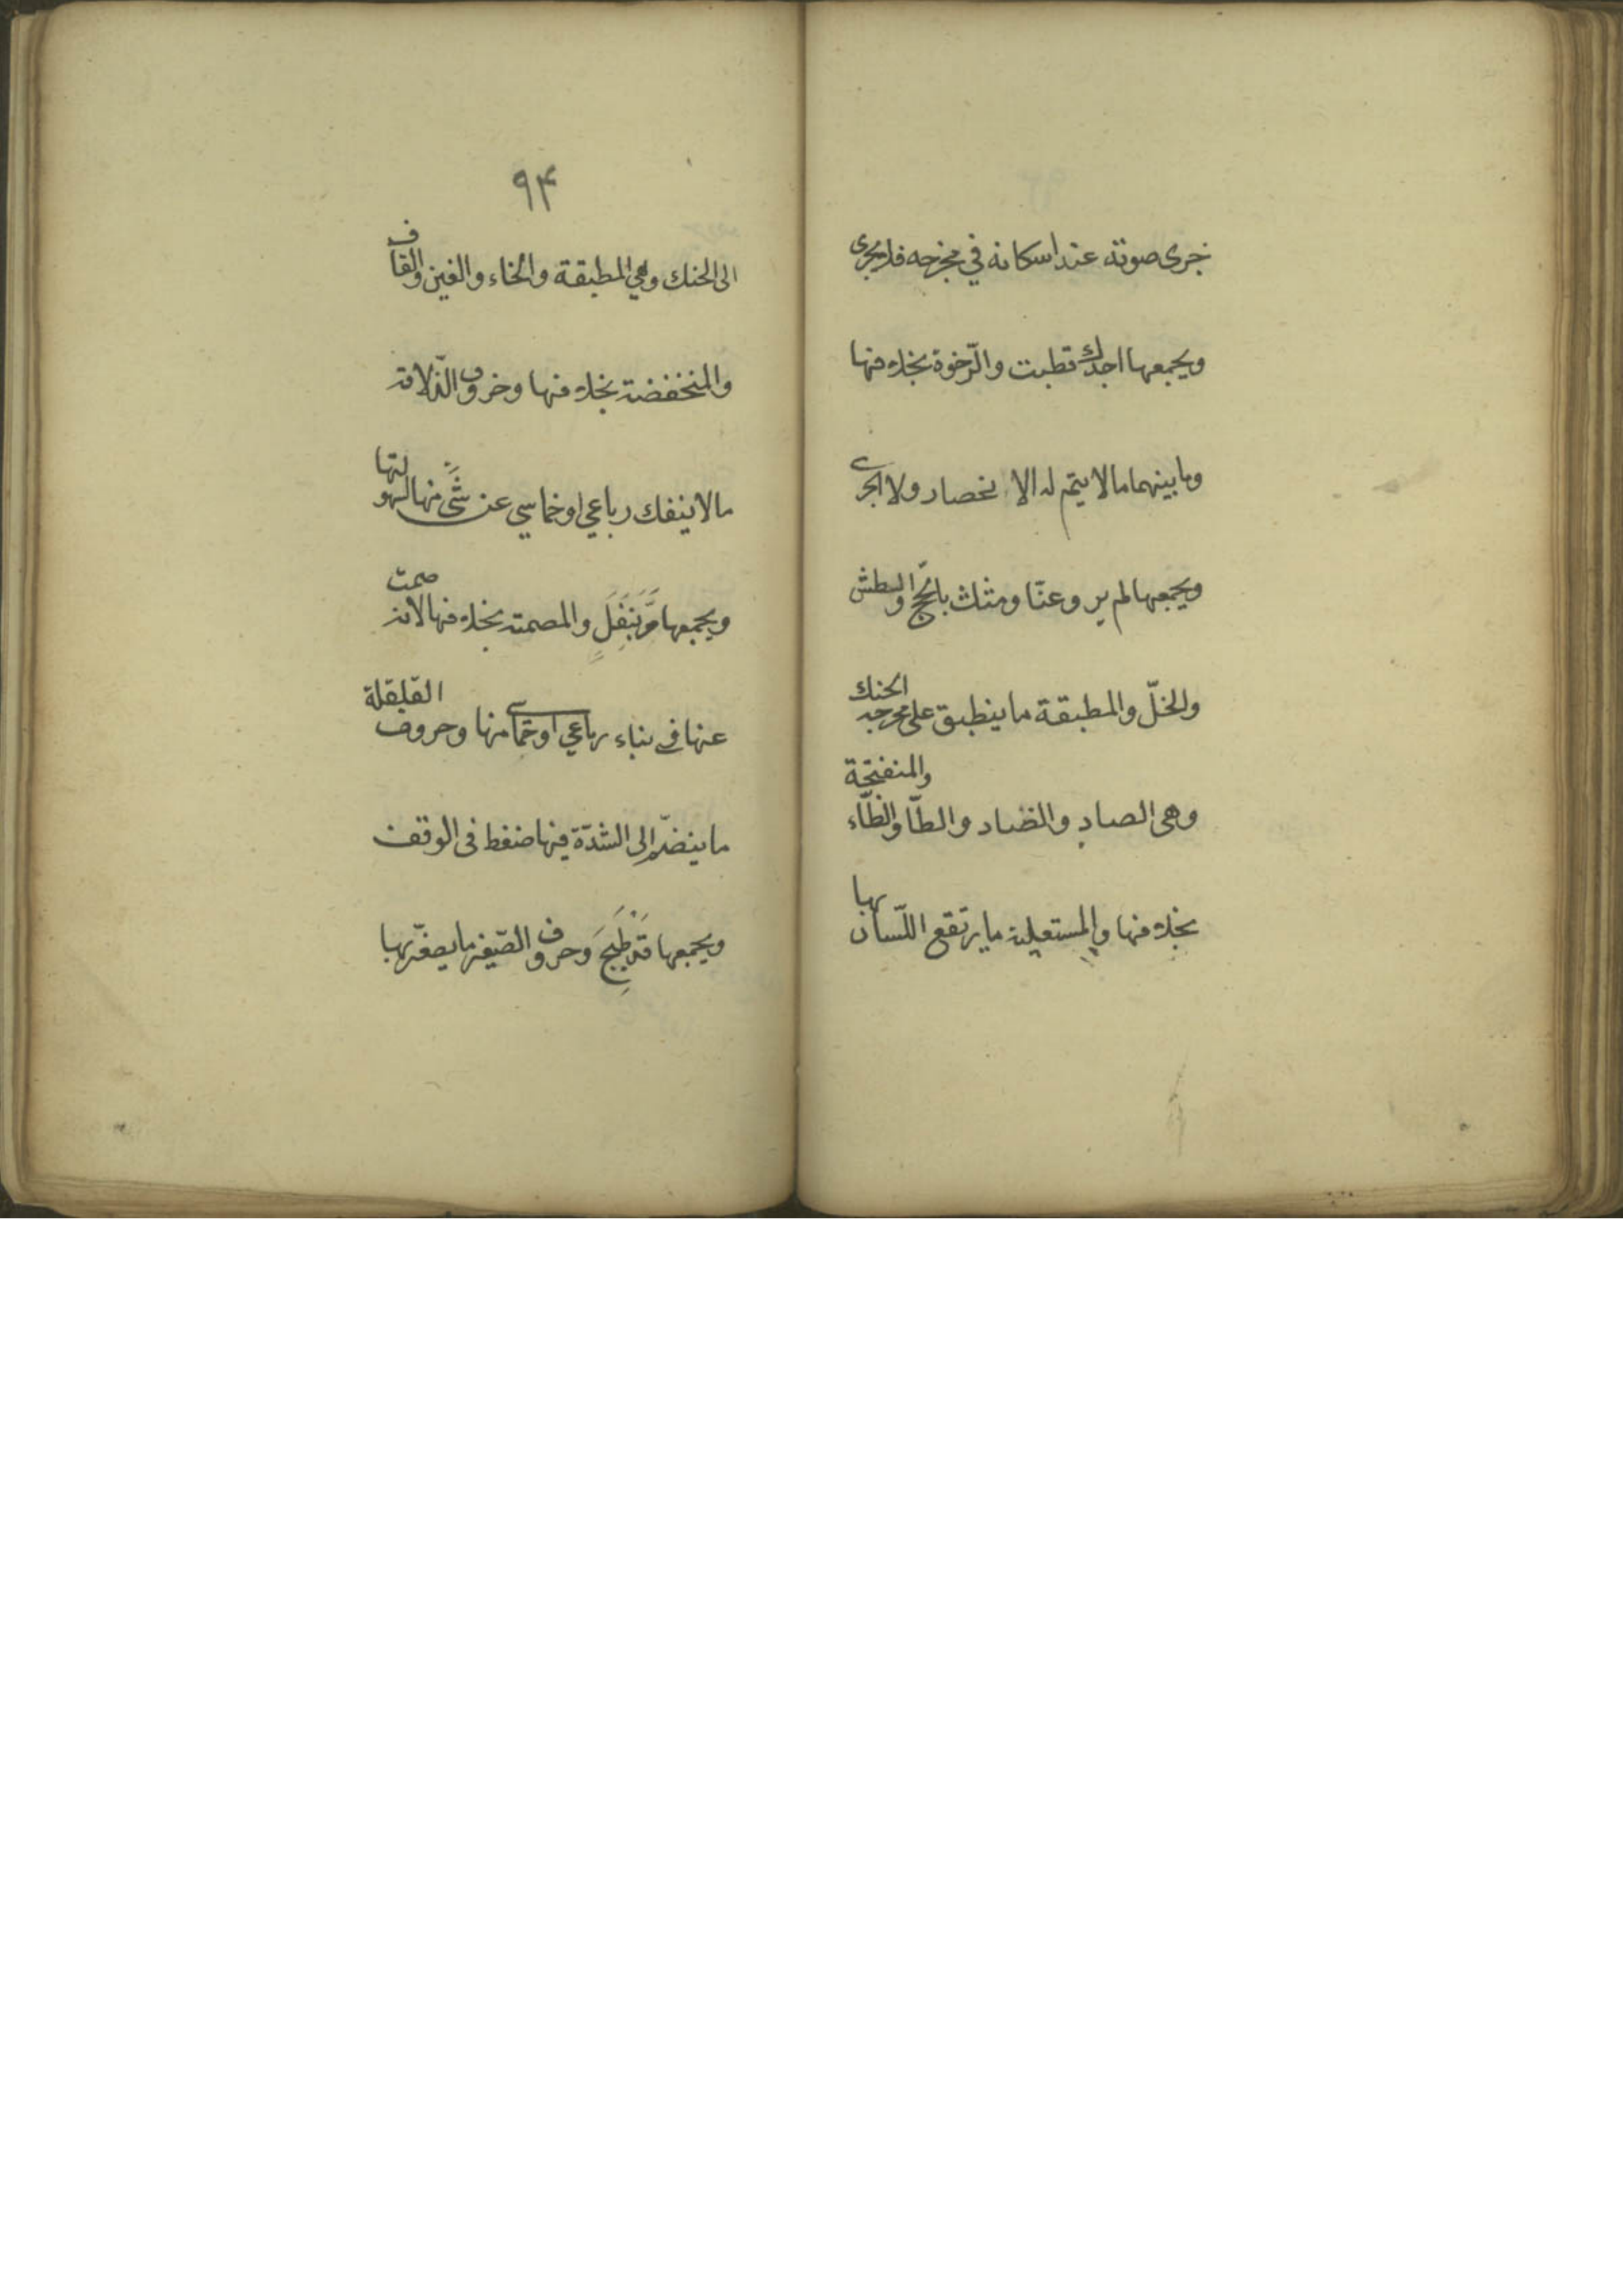 جرى صوته عند اسكانه في مخرجه فلا يجرى
ويجمعها اجدك قطبت والرّخوة بخلافها
وما بينهما ما لا يتم له الانحصار ولا الجرى
ويجمعها لم يروعنّا ومثلث بالحجّ والطش
والخلّ والمطبقة ما ينطبق على مخرجه الحنك
وهى الصاد والضاد والطّا والظّاء والمنفتحة
بخلافها والمستعلية ما يرتفع اللّسان بها
٩۴
الى الحنك وهي المطبقة والخاء والغين والقاف
والمنخفضة بخلافها وحروف الذّلاقة
ما لا ينفك رباعي او خماسي عن شئ منها لسهولتها
ويجمعها مر بنفل والمصمتة بخلافها لانه صمت
عنها في بناء رباعي او خماسى منها وحروف القلقلة
ما ينضمّ الى الشدّة فيها ضغط فى الوقف
ويجمعها قد طبج وحروف الصّفير ما يصفّر بها